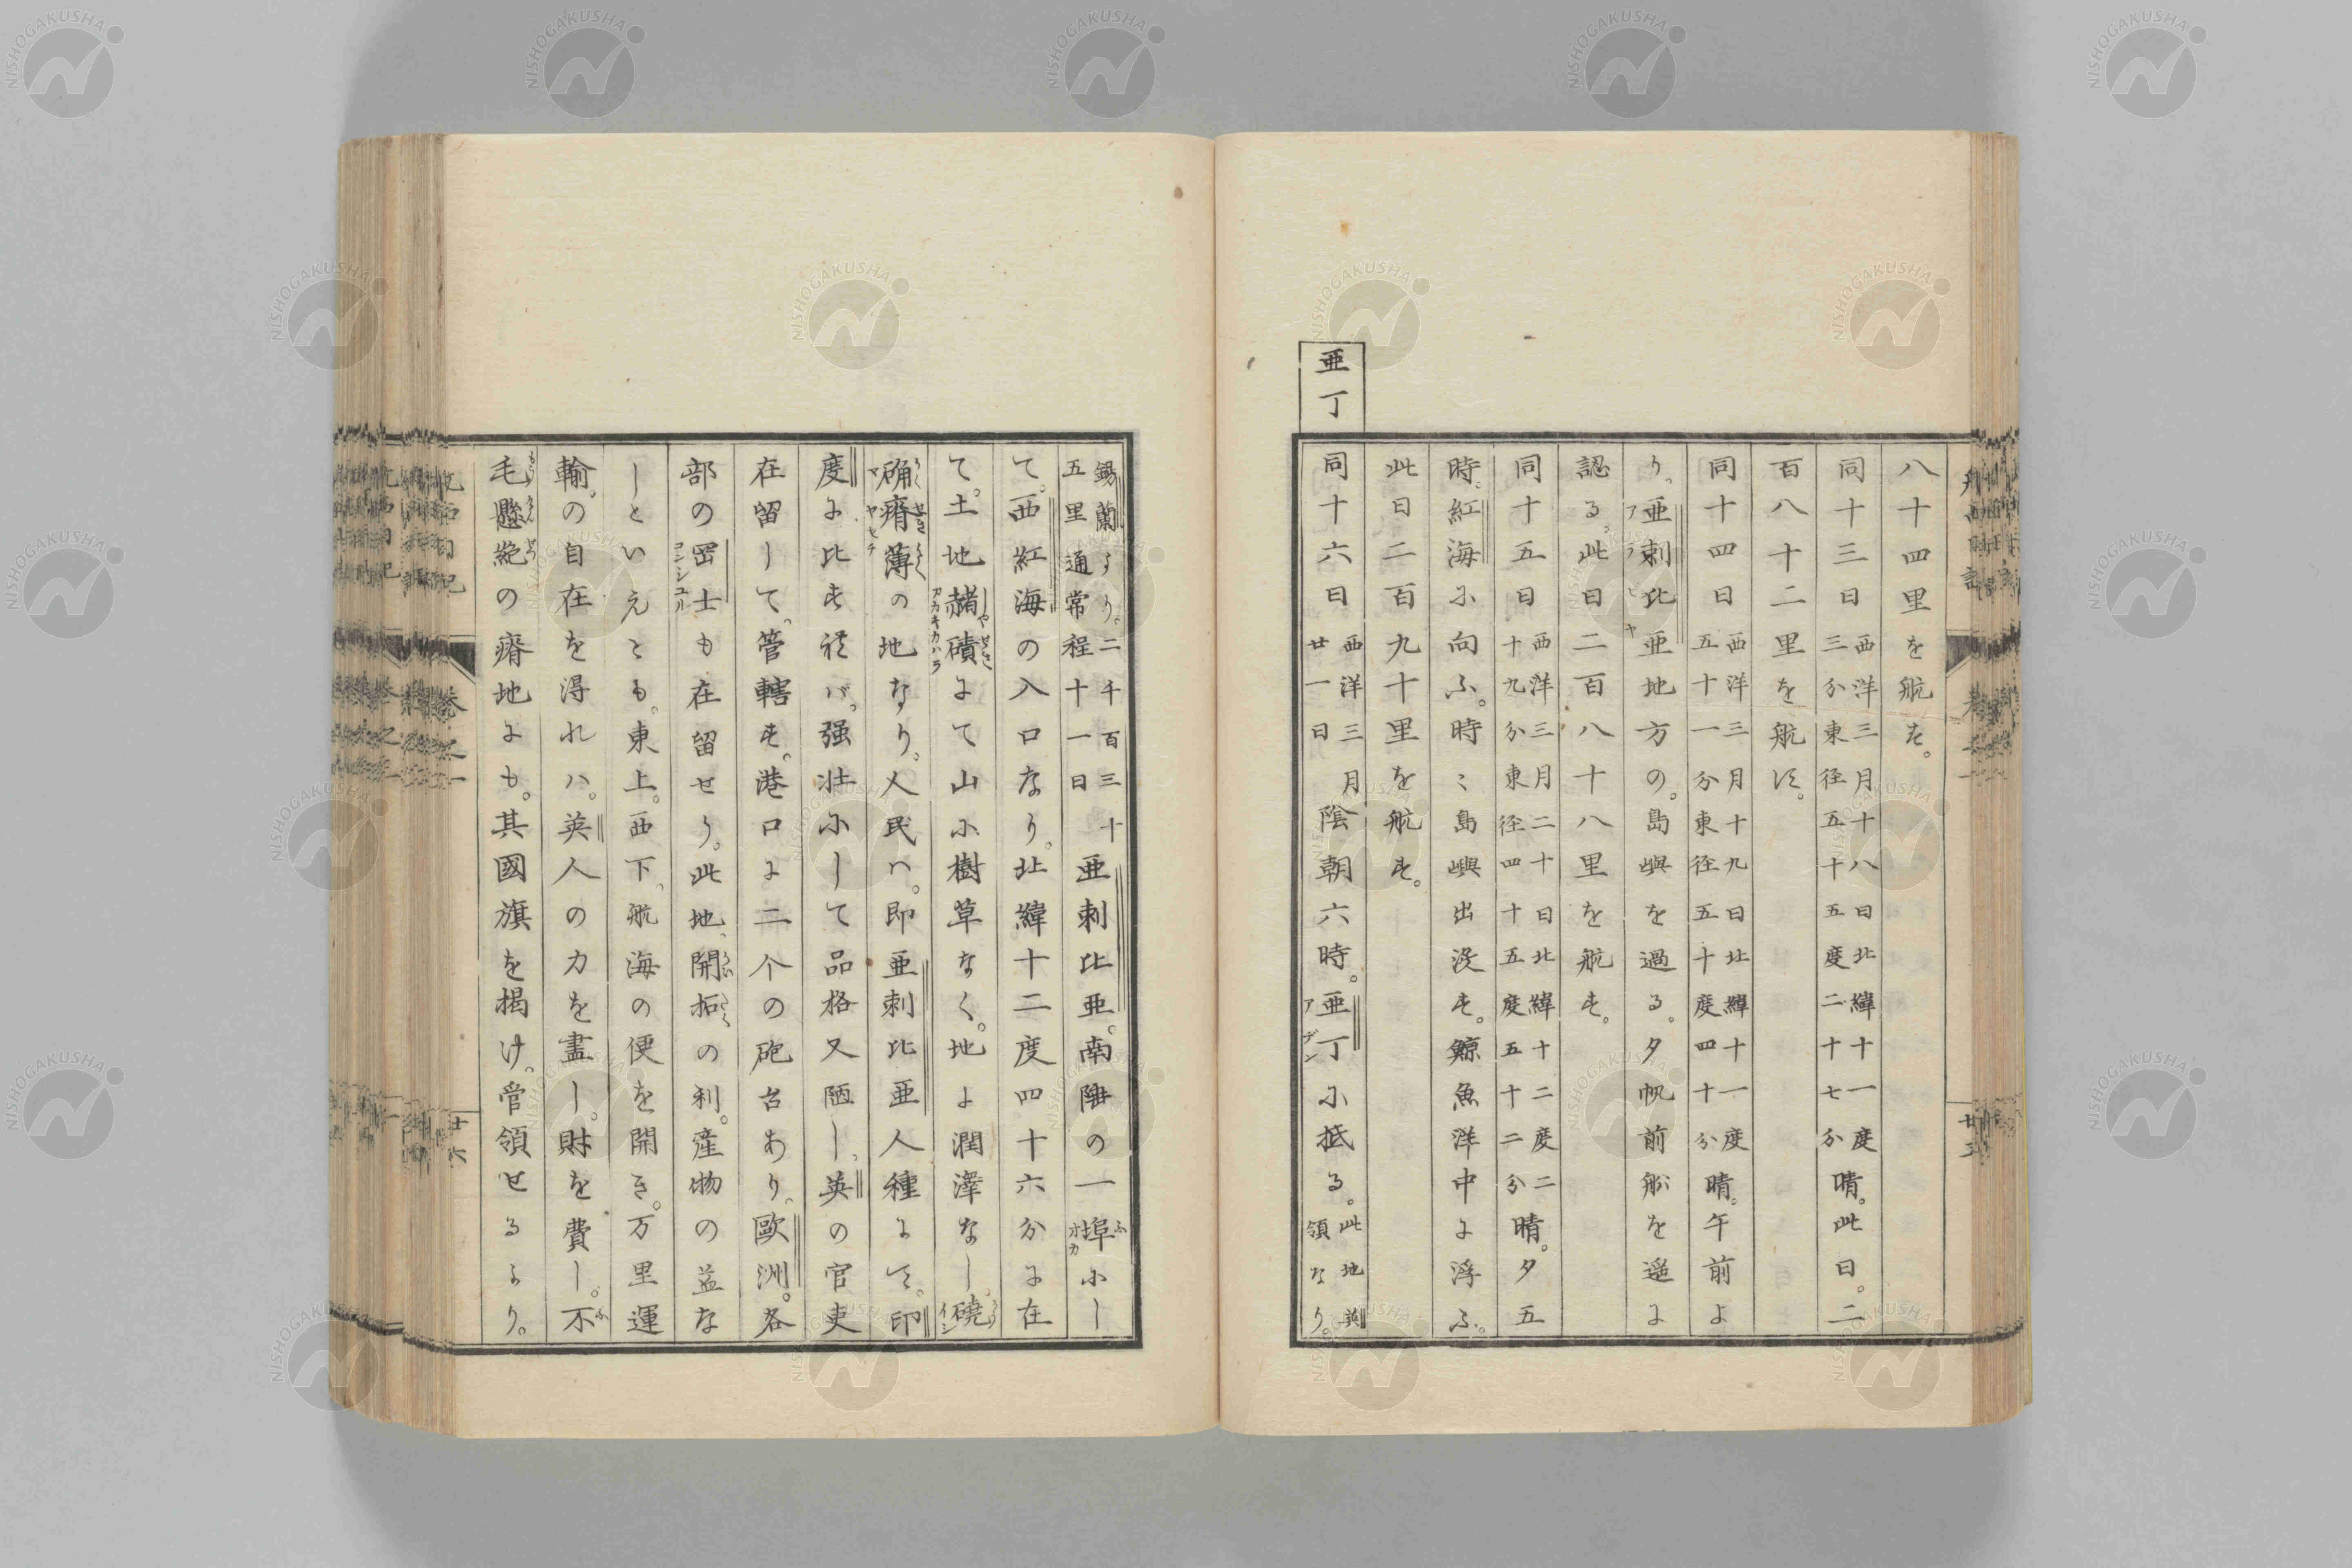 八十四里を航を。
同十三日西洋三月十八日北緯十一度三分東径五十五度二十七分晴。此日。二
百八十二里を航す。
同十四日西洋三月十九日北緯十一度五十一分東径五十度四十分晴。午前よ
り、亜剌比亜地方の。島嶼を過る。夕帆前船を遥に
アラビヤ
認る、此日二百八十八里を航す。
同十五日西洋三月二十日北緯十二度二十九分東径四十五度五十二分晴。夕五
時。紅海に向ふ。時〻島嶼出没す。鯨魚洋中に浮ふ。
此日二百九十里を航す。
亜丁
同十六日西洋三月廿一日陰朝六時。亜丁に抵る。此地英領なり。
アデン
錫蘭より。二千百三十五里通常程十一日亜剌比亜。南陲の一埠にし
ふ
オカ
て。西紅海の入口なり。北緯十二度四十六分に在
て。土地赭磧にて山に樹草なく。地に潤澤なし。磽
しやせき
アカキカハラ
确瘠薄の地なり。人民ハ。即亜剌比亜人種にて。印
かくせきはく
ヤセチ
度に比すれバ。强壮にして品格又陋し、英の官吏
在留して、管轄す。港口に二个の砲台あり。歐洲。各
部の岡士も在留せり。此地、開拓の利。産物の益な
コンシユル
かいたく
しといえとも。東上。西下、航海の便を開き。万里運
輸。の自在を得れハ。英人の力を盡し。財を費し。不
ふ
毛懸絶の瘠地にも。其國旗を掲け。管領せるより。
もうけんぜつ
巻之一
廿六